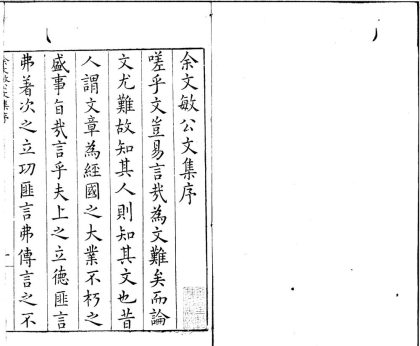 余文敏公文集序
嗟乎文豈易言哉為文難矣而論
文尤難故知其人則知其文也昔
人謂文章為經國之大業不朽之
盛事旨哉言乎夫上之立德匪言
弗著次之立功匪言弗傳言之不